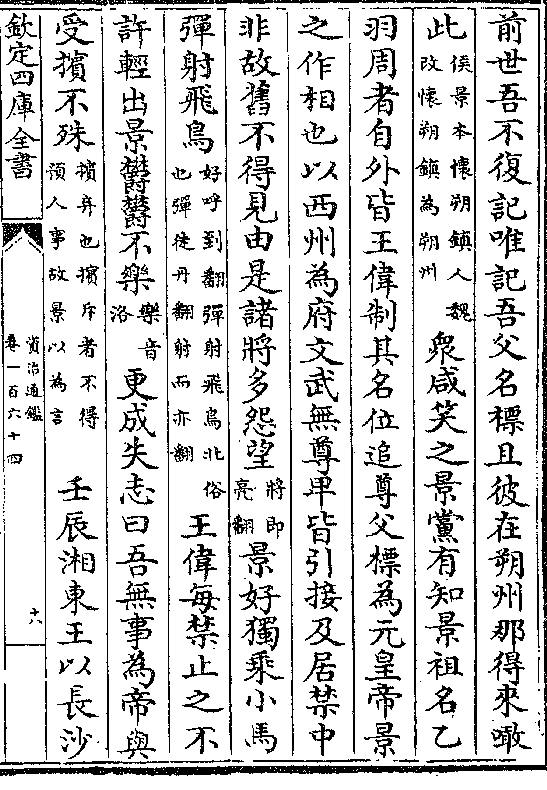 前世吾不復記唯記吾父名標且彼在朔州那得來噉
此侯景本懷朔鎮人魏改懷朔鎮為朔州衆咸笑之景黨有知景祖名乙
羽周者自外皆王偉制其名位追尊父標為元皇帝景
之作相也以西州為府文武無尊卑皆引接及居禁中
非故舊不得見由是諸將多怨望將即亮翻景好獨乘小馬
彈射飛鳥好呼到翻彈射飛鳥北俗也彈徒丹翻射而亦翻王偉每禁止之不
許輕出景鬱鬱不樂樂音洛更成失志曰吾無事為帝與
受擯不殊擯弃也擯斥者不得預人事故景以為言壬辰湘東王以長沙
欽定四庫全書
資治通鑑
卷一百六十四
十八